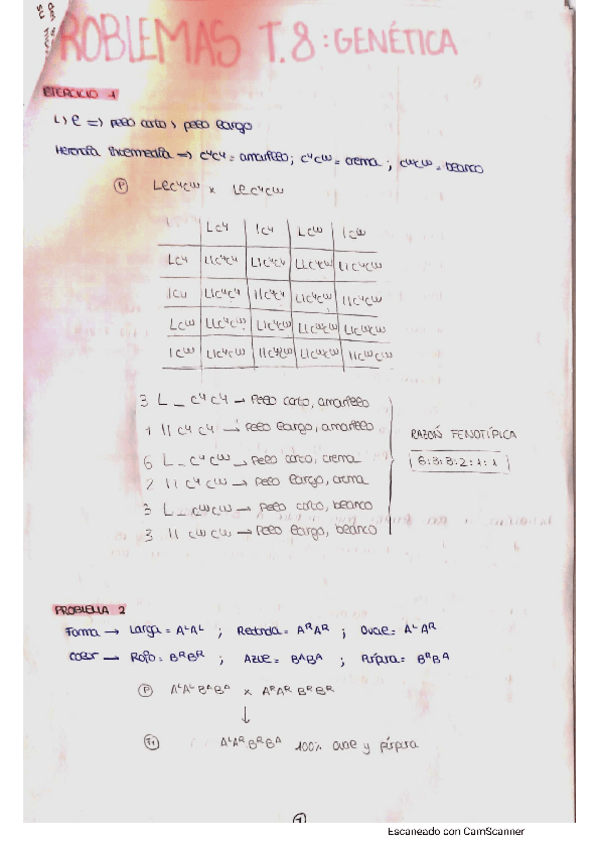 PROBLEMAS T.8: GENÉTICA
EJERCICIO 1
L > l => pelo corto > pelo largo
Herencia Intermedia => CʸCʸ = amarillo; CʸCʷ = crema; CʷCʷ = blanco
(P) LlCʸCʷ x LlCʸCʷ
LCʸ lCʸ LCʷ lCʷ
LCʸ LLCʸCʸ LlCʸCʸ LLCʸCʷ LlCʸCʷ
lCʸ LlCʸCʸ llCʸCʸ LlCʸCʷ llCʸCʷ
LCʷ LLCʸCʷ LlCʸCʷ LLCʷCʷ LlCʷCʷ
lCʷ LlCʸCʷ llCʸCʷ LlCʷCʷ llCʷCʷ
3 L _ CʸCʸ → Pelo corto, amarillo
1 ll CʸCʸ → Pelo largo, amarillo
RAZÓN FENOTÍPICA
6 L _ CʸCʷ → Pelo corto, crema
6:3:3:2:1:1
2 ll CʸCʷ → Pelo largo, crema
3 L _ CʷCʷ → Pelo corto, blanco
3 ll CʷCʷ → Pelo largo, blanco
PROBLEMA 2
Forma → Larga = AᴸAᴸ ; Redonda = AᴿAᴿ ; Oval = AᴸAᴿ
Color → Rojo = BᴿBᴿ ; Azul = BᴬBᴬ ; Púrpura = BᴿBᴬ
(P) AᴸAᴸBᴬBᴬ x AᴿAᴿBᴿBᴿ
↓
(F1) AᴸAᴿBᴿBᴬ 100% oval y púrpura
1
Escaneado con CamScanner